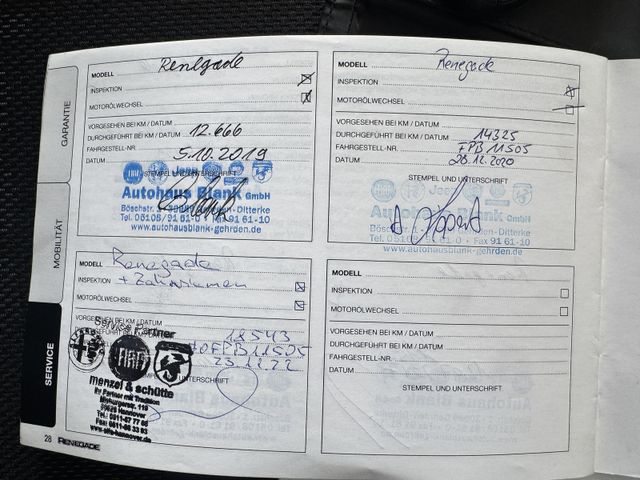 GARANTIE
MOBILITÄT
SERVICE
MODELL Renegade
INSPEKTION
MOTORÖLWECHSEL
VORGESEHEN BEI KM / DATUM
DURCHGEFÜHRT BEI KM / DATUM 12.666
FAHRGESTELL-NR.
DATUM 5.10.2019
STEMPEL UND UNTERSCHRIFT
FIAT Jeep
Autohaus Blank GmbH
Ditterke
Tel. 05108/91 61-0 · Fax 91 61-10
www.autohausblank-gehrden.de
MODELL Renegade
INSPEKTION
MOTORÖLWECHSEL
VORGESEHEN BEI KM / DATUM
DURCHGEFÜHRT BEI KM / DATUM 14325
FAHRGESTELL-NR. FPB11505
DATUM 28.12.2020
STEMPEL UND UNTERSCHRIFT
Jeep
Autohaus Blank GmbH
Ditterke
Tel. 05108/91 61-0 · Fax 91 61-10
www.autohausblank-gehrden.de
MODELL Renegade
INSPEKTION + Zahnriemen
MOTORÖLWECHSEL
VORGESEHEN BEI KM / DATUM
18543
FPB11505
23.12.22
UNTERSCHRIFT
Service Partner
FIAT
menzel & schütte
Ihr Partner mit Tradition
Hannover
MODELL
INSPEKTION
MOTORÖLWECHSEL
VORGESEHEN BEI KM / DATUM
DURCHGEFÜHRT BEI KM / DATUM
FAHRGESTELL-NR.
DATUM
STEMPEL UND UNTERSCHRIFT
28 RENEGADE